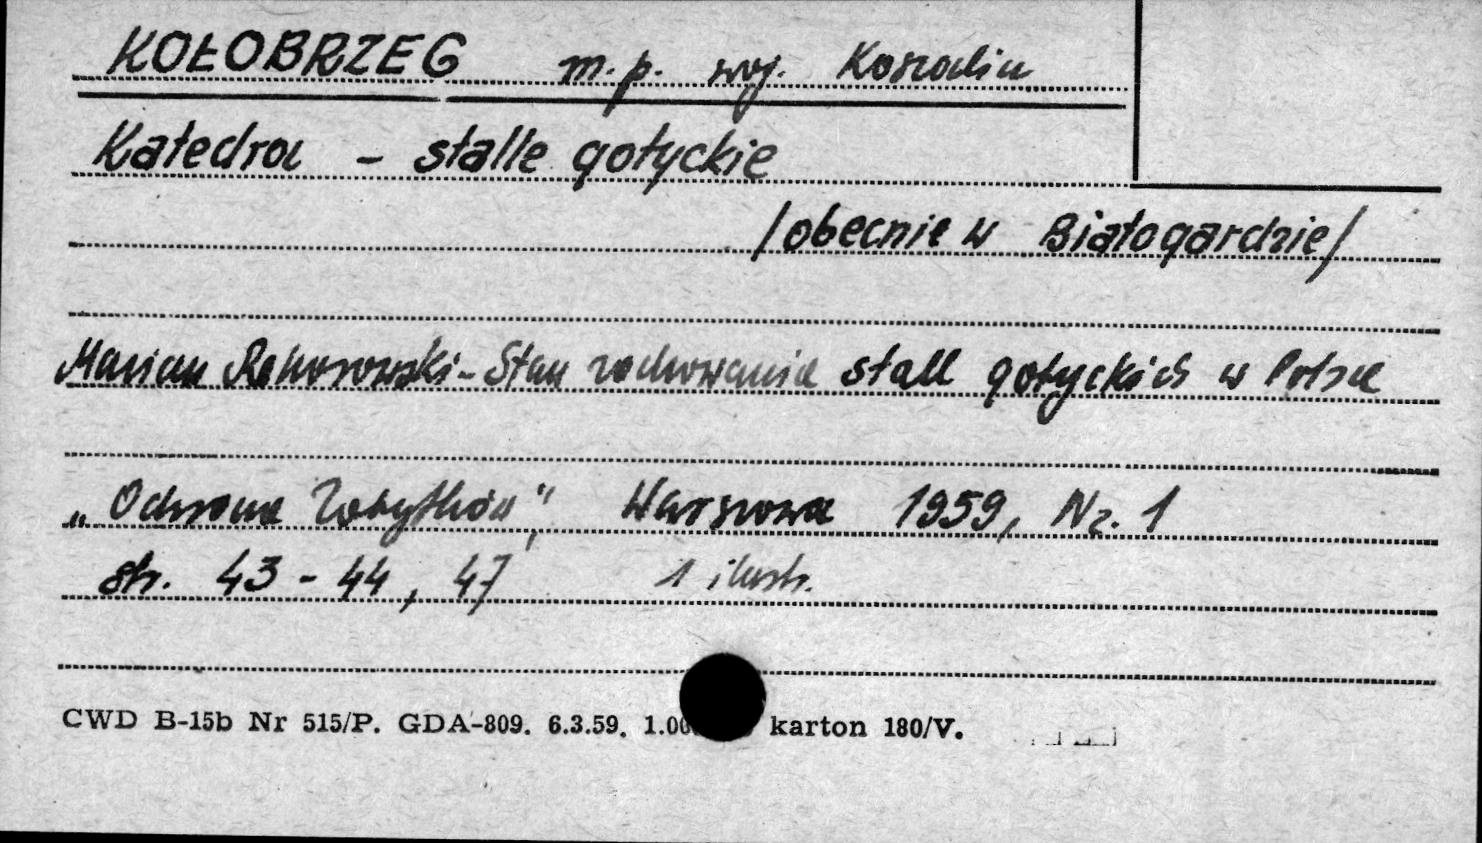 KOŁOBRZEG m.p. woj. Koszalin
Katedra - stalle gotyckie
/obecnie w Białogardzie/
Marian Rehorowski - Stan zachowania stall gotyckich w Polsce
„Ochrona Zabytków", Warszawa 1959, Nr. 1
str. 43 - 44, 47 1 ilustr.
CWD B-15b Nr 515/P. GDA-809. 6.3.59. karton 180/V.